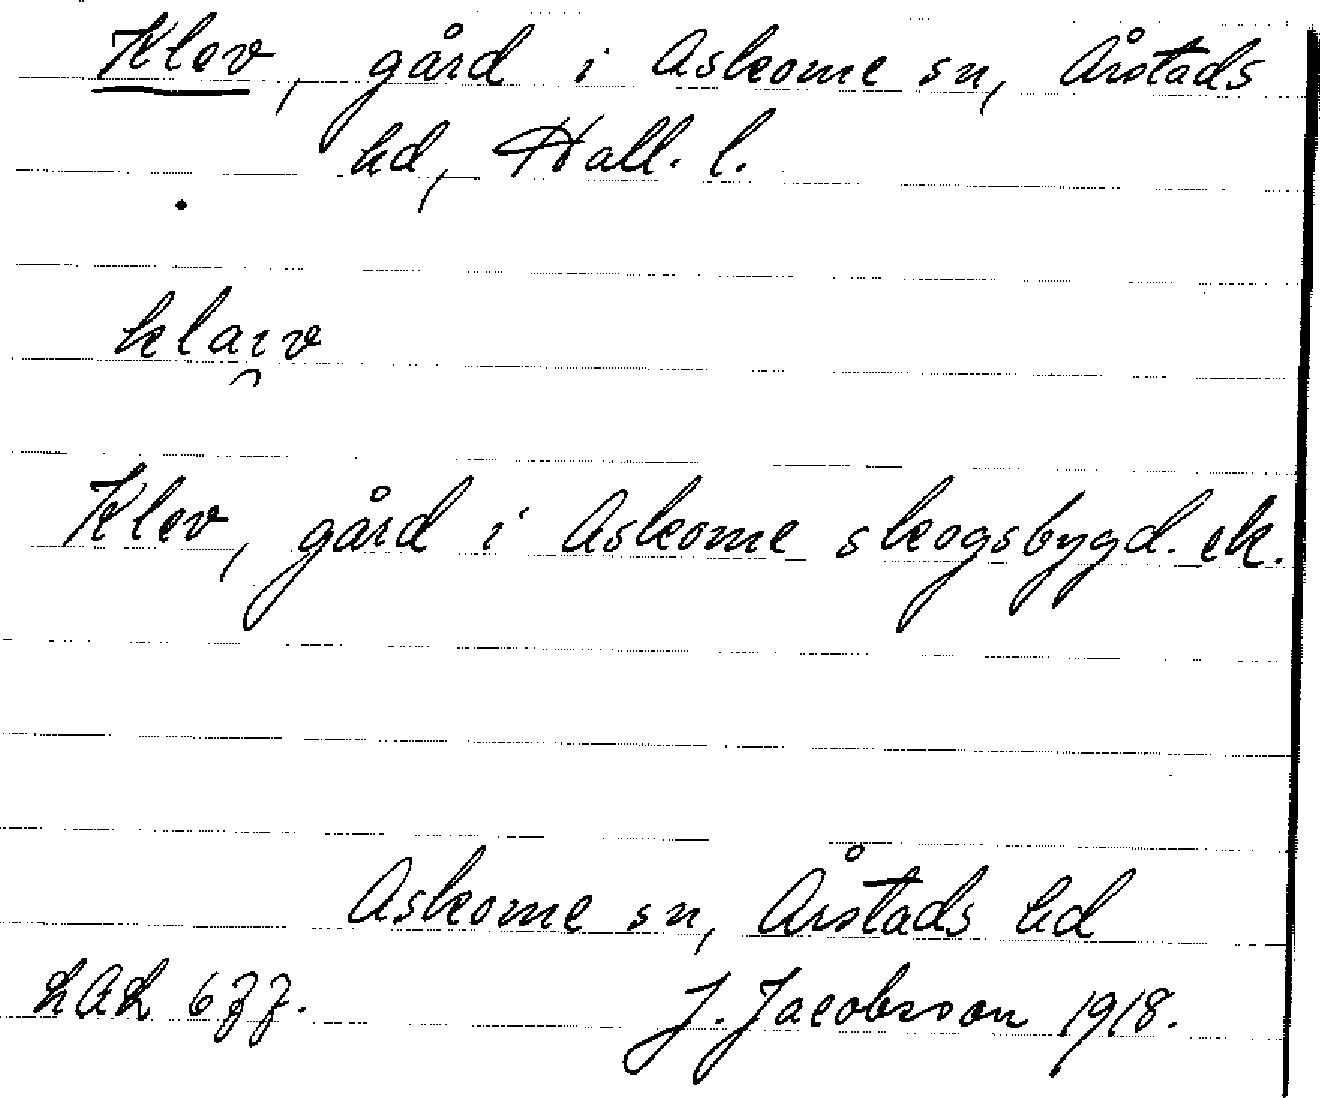 Klev, gård i Askome sn, Årstads
hd, Hall. l.
klaıv
Klev, gård i Askome skogsbygd. ek.
Askome sn, Årstads hd
J. Jacobsson 1918.